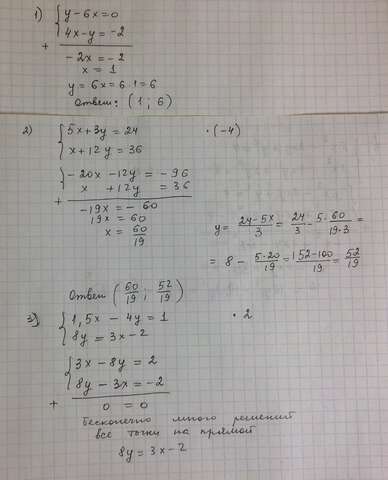 1) { y - 6x = 0
4x - y = -2
+
-2x = -2
x = 1
y = 6x = 6 · 1 = 6
Ответ: (1; 6)
2) { 5x + 3y = 24 · (-4)
x + 12y = 36
{ -20x - 12y = -96
x + 12y = 36
+
-19x = -60
19x = 60
x = 60/19
y = (24-5x)/3 = 24/3 - 5·60/19·3 =
= 8 - 5·20/19 = 152-100/19 = 52/19
Ответ (60/19; 52/19)
3) { 1,5x - 4y = 1 · 2
8y = 3x - 2
{ 3x - 8y = 2
8y - 3x = -2
+
0 = 0
Бесконечно много решений
все точки на прямой
8y = 3x - 2